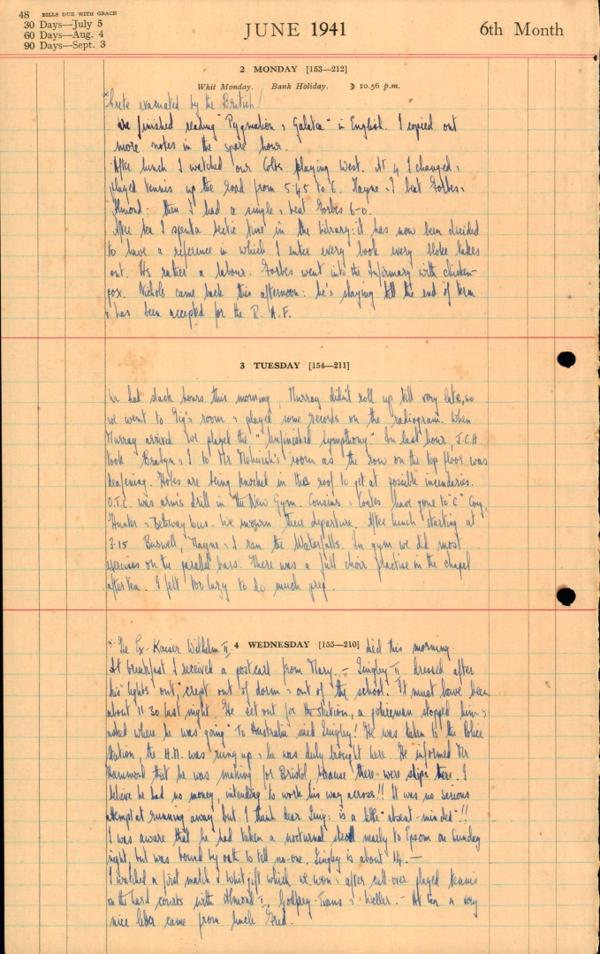 48 BILLS DUE WITH GRACE
30 Days—July 5
60 Days—Aug. 4
90 Days—Sept. 3
JUNE 1941
6th Month
2 MONDAY [153—212]
Whit Monday. Bank Holiday. ☽ 10.56 p.m.
Crete evacuated by the British!
We finished reading "Pygmalion & Galatea" in English. I copied out
more notes in the spare hour.
After lunch I watched our Colts playing West. At 4 I changed,
played tennis up the road from 5.45 to 6. Mayne & I beat Forbes &
Almond: then I had a single & beat Forbes 6-0.
After tea I spent a hectic time in the library: it has now been decided
to have a reference in which I enter every book every bloke takes
out. It's rather a labour. Forbes went into the Infirmary with chicken-
pox. Nichols came back this afternoon: he's staying till the end of term
& has been accepted for the R.A.F.
3 TUESDAY [154—211]
We had slack hours this morning. Murray didn't roll up till very late, so
we went to room & played some records on the radiogram. When
Murray arrived we played the "Unfinished Symphony". In last hour, J.C.H.
took & I to Mr room as the row on the top floor was
deafening. Holes are being knocked in the roof to get at possible incendiaries.
O.T.C. was arms drill in the New Gym. Cousins & Coales have gone to "C" Coy,
Hunter & . We mourn their departure. After lunch starting at
3.15 Buswell, Mayne & I ran the Waterfalls. In gym we did most
exercises on the parallel bars. There was a full choir practice in the chapel
after tea. I felt too lazy to do much prep.
4 WEDNESDAY [155—210]
The Ex-Kaiser Wilhelm II died this morning.
At breakfast I received a postcard from Mary. — Lingley II dressed after
his lights "out" crept out of dorm & out of the school. It must have been
about 11.30 last night. He set out for the station, a policeman stopped him &
asked where he was going "To Australia" said Lingley! He was taken to the Police
Station, the H.M. was rung up & he was duly brought here. He informed Mr
Hammond that he was making for Bristol because there were ships there. I
believe he had no money, intending to work his way across!! It was no serious
attempt at running away but I think dear Ling: is a little "absent-minded"!!
I was aware that he had taken a nocturnal stroll nearly to Epsom on Sunday
night, but was bound by oath to tell no-one. Lingley is about 14. —
I watched a first match v Whitgift which we won & after call-over played tennis
on the hard courts with Almond I, Godfrey-Evans & Weller. — At tea a very
nice letter came from Uncle Fred.